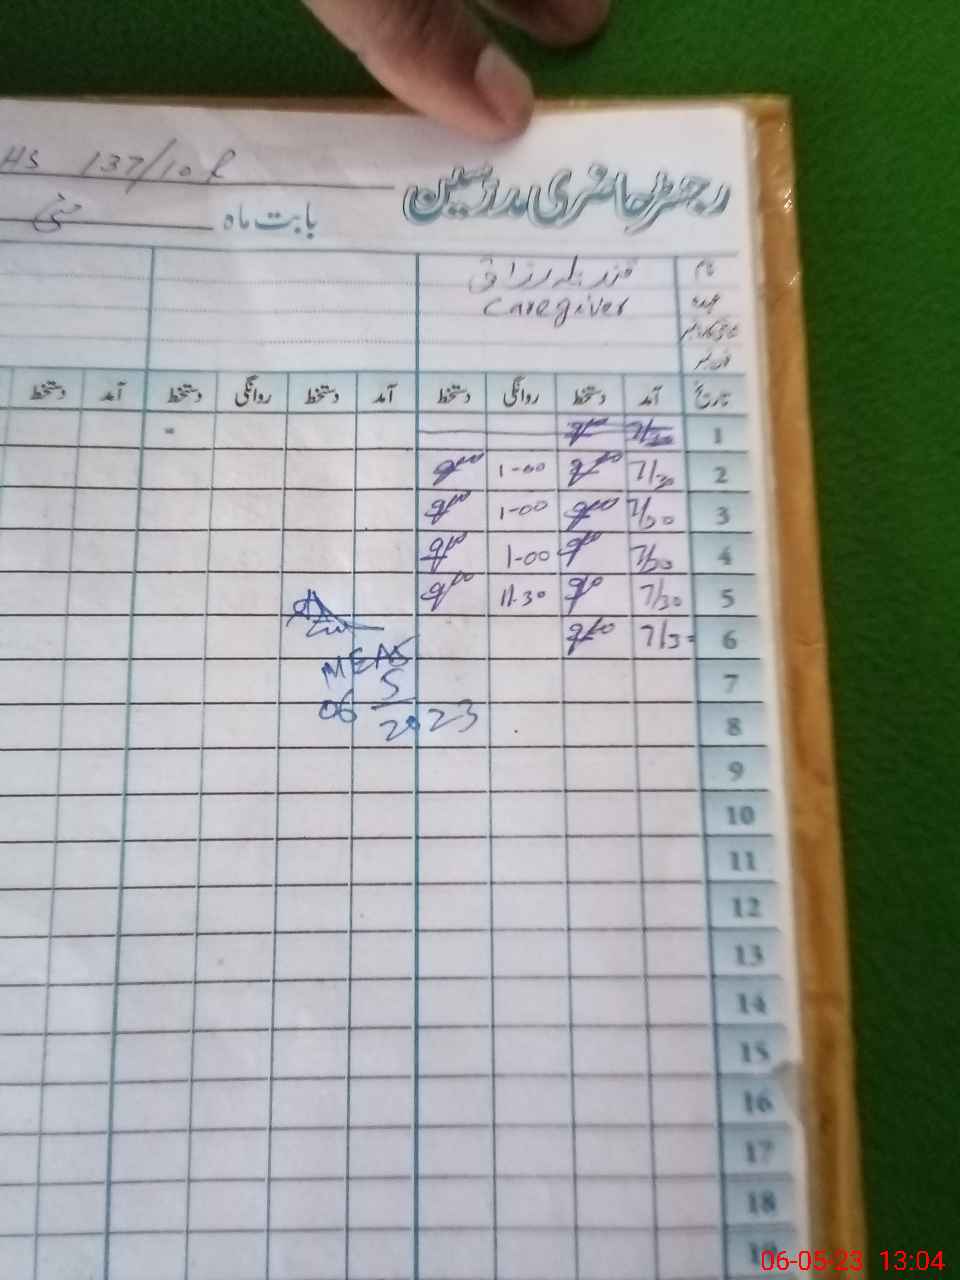 HS 137/10 R
رجسٹر حاضری مدرسین
بابت ماہ مئی
نام
عہدہ
Caregiver
تاریخ آمد دستخط روانگی دستخط آمد دستخط روانگی دستخط آمد دستخط
1 7/30
2 7/30 1-00
3 7/30 1-00
4 7/30 1-00
5 7/30 11.30
6 7/30
7
8
9
10
11
12
13
14
15
16
17
18
19
MEA
06 5
2023
06-05-23 13:04